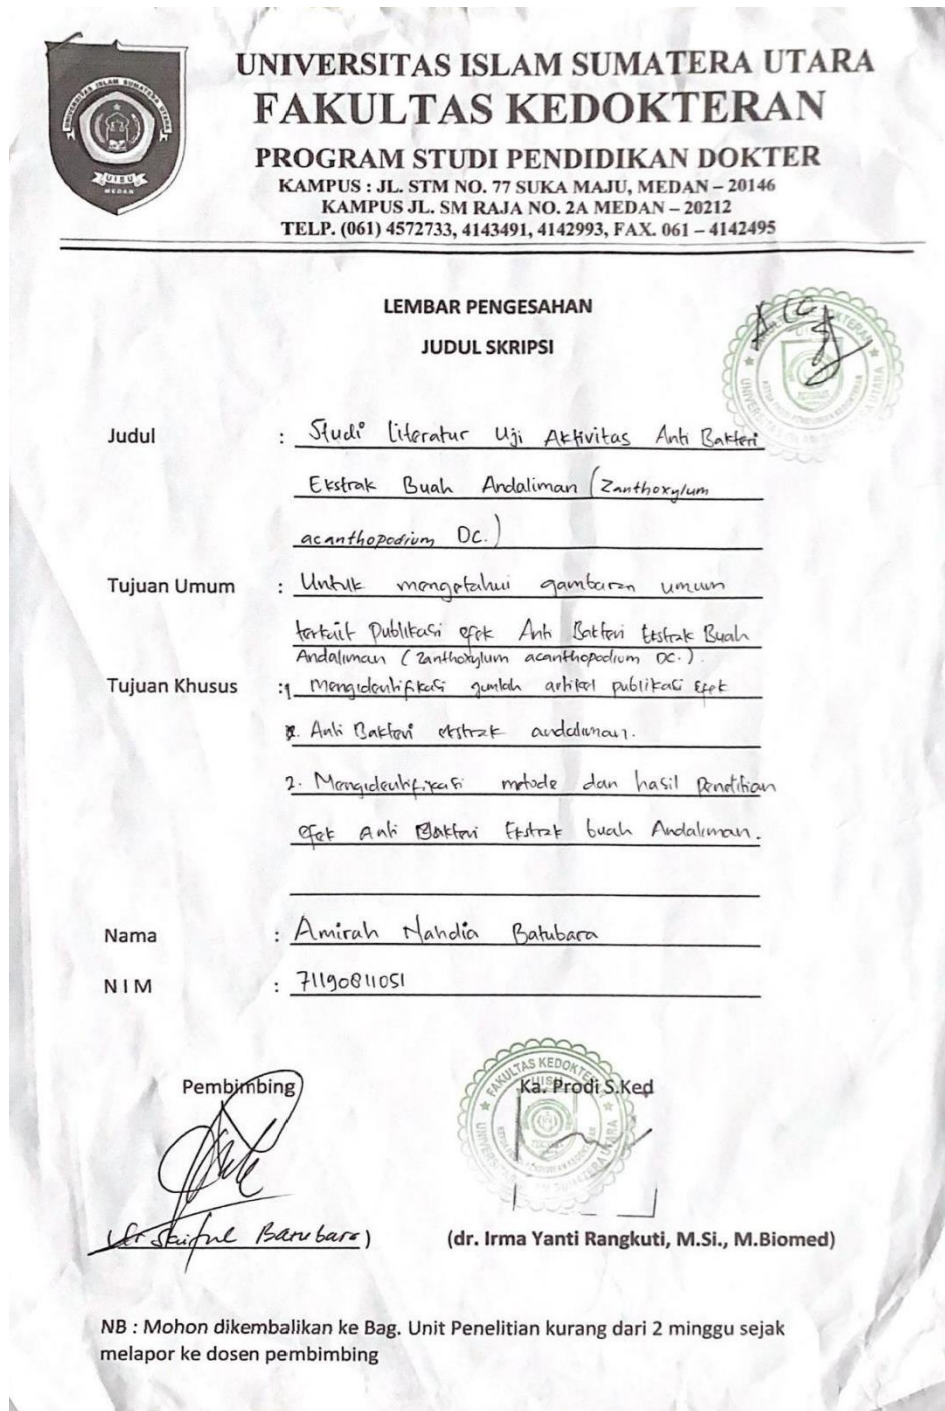 UNIVERSITAS ISLAM SUMATERA UTARA
UISU
MEDAN
UNIVERSITAS ISLAM SUMATERA UTARA
FAKULTAS KEDOKTERAN
PROGRAM STUDI PENDIDIKAN DOKTER
KAMPUS : JL. STM NO. 77 SUKA MAJU, MEDAN – 20146
KAMPUS JL. SM RAJA NO. 2A MEDAN – 20212
TELP. (061) 4572733, 4143491, 4142993, FAX. 061 – 4142495
LEMBAR PENGESAHAN
JUDUL SKRIPSI
Judul : Studi Literatur Uji Aktivitas Anti Bakteri
Ekstrak Buah Andaliman (Zanthoxylum
acanthopodium DC.)
Tujuan Umum : Untuk mengetahui gambaran umum
terkait Publikasi efek Anti Bakteri Ekstrak Buah
Andaliman (Zanthoxylum acanthopodium DC.).
Tujuan Khusus :1 Mengidentifikasi jumlah artikel publikasi Efek
Anti Bakteri ekstrak andaliman.
2. Mengidentifikasi metode dan hasil Penelitian
efek Anti Bakteri Ekstrak buah Andaliman.
Nama : Amirah Nahdia Batubara
NIM : 71190811051
Pembimbing
FAKULTAS KEDOKTERAN
UISU
UNIVERSITAS ISLAM SUMATERA UTARA
Ka. Prodi S.Ked
(dr Saiful Batubara)
(dr. Irma Yanti Rangkuti, M.Si., M.Biomed)
NB : Mohon dikembalikan ke Bag. Unit Penelitian kurang dari 2 minggu sejak
melapor ke dosen pembimbing